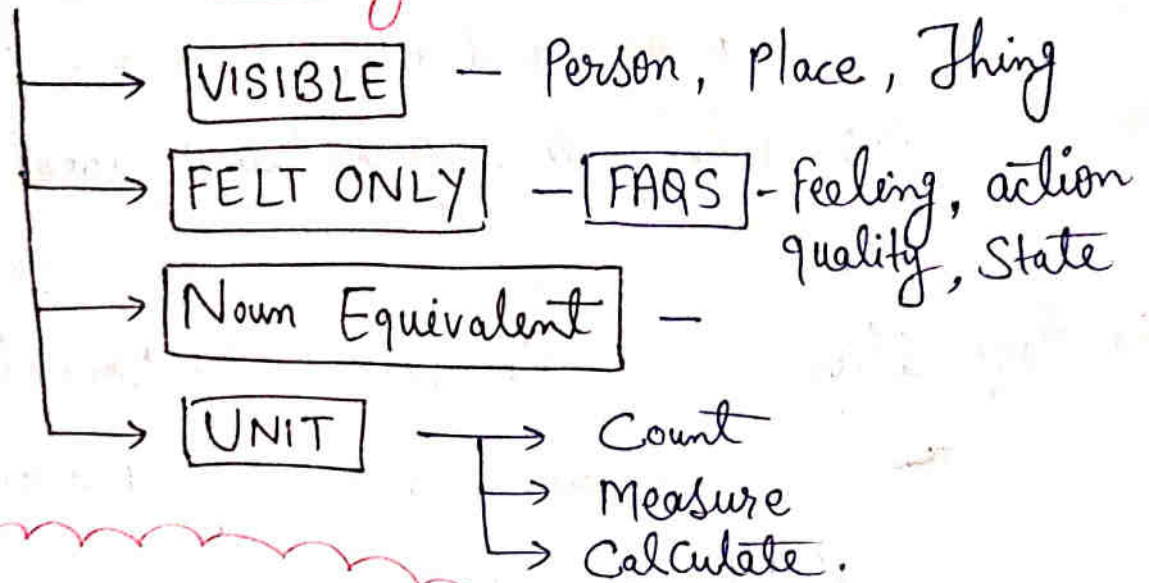 VISIBLE - Person, Place, Thing
FELT ONLY - FAQS - Feeling, action
quality, State
Noun Equivalent -
UNIT → Count
→ Measure
→ Calculate.